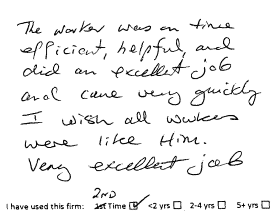 The worker was on time
efficient, helpful, and
did an excellent job
and came very quickly
I wish all workers
were like Him.
Very excellent job
2ND
I have used this firm: 1st Time ☑ <2 yrs ☐ 2-4 yrs ☐ 5+ yrs ☐